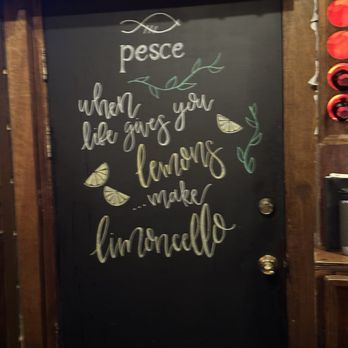 pesce
when
life gives you
lemons
...make
limoncello